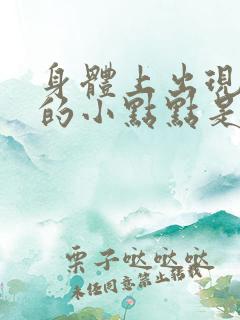 身體上出現
的小點點是
栗子哒哒哒
未经同意禁止转载